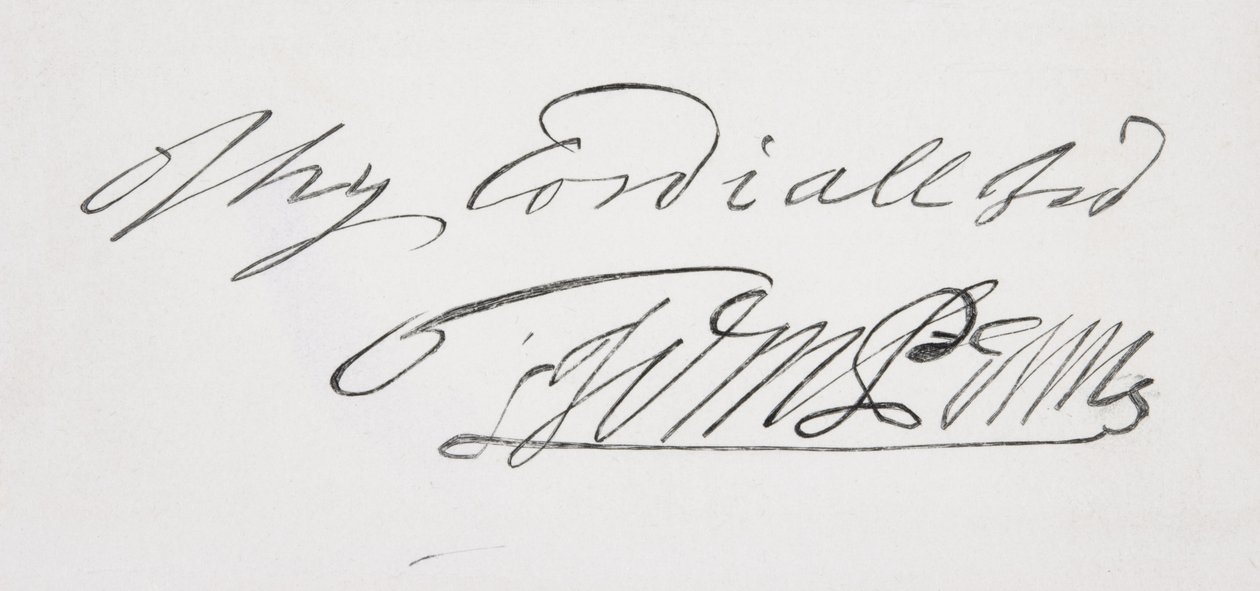 Thy Cordiall Frd
Wm Penn